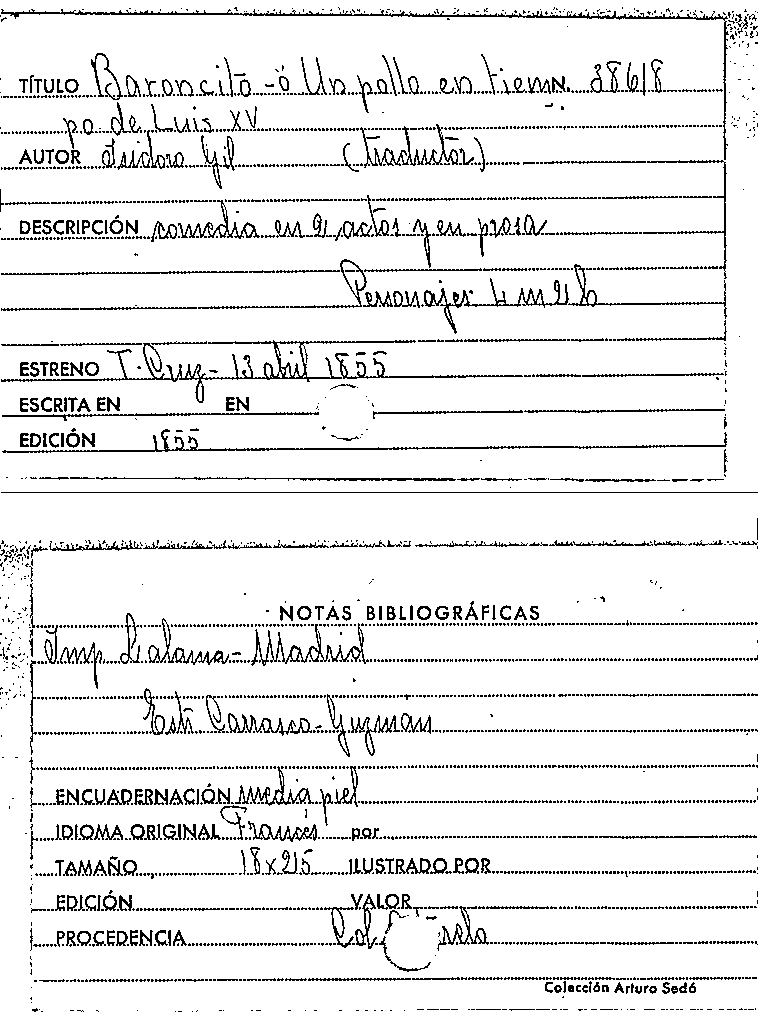 TÍTULO Baroncito - ó Un pollo en tiem N. 38618
po de Luis XV
AUTOR Isidoro Gil (traductor)
DESCRIPCIÓN comedia en 2 actos y en prosa
Personajes 4 m 2 h
ESTRENO T. Cruz - 13 abril 1855
ESCRITA EN EN
EDICIÓN 1855
NOTAS BIBLIOGRÁFICAS
Imp Lalama - Madrid
Carrasco - Guzmán
ENCUADERNACIÓN media piel
IDIOMA ORIGINAL Francés por
TAMAÑO 18x25 ILUSTRADO POR
EDICIÓN VALOR
PROCEDENCIA Col.
Colección Arturo Sedó